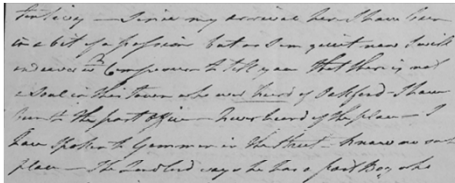 Since my arrival here I have been
in a bit of a passion but as I am quiet now I will
endeavor in Composure to tell you that there is not
a Soul in this Town who ever heard of Oakford - I have
been to the post office - never heard of the place - I
have spoken to Gammer in the street - knows no such
place - The Landlord says he has a post Boy who